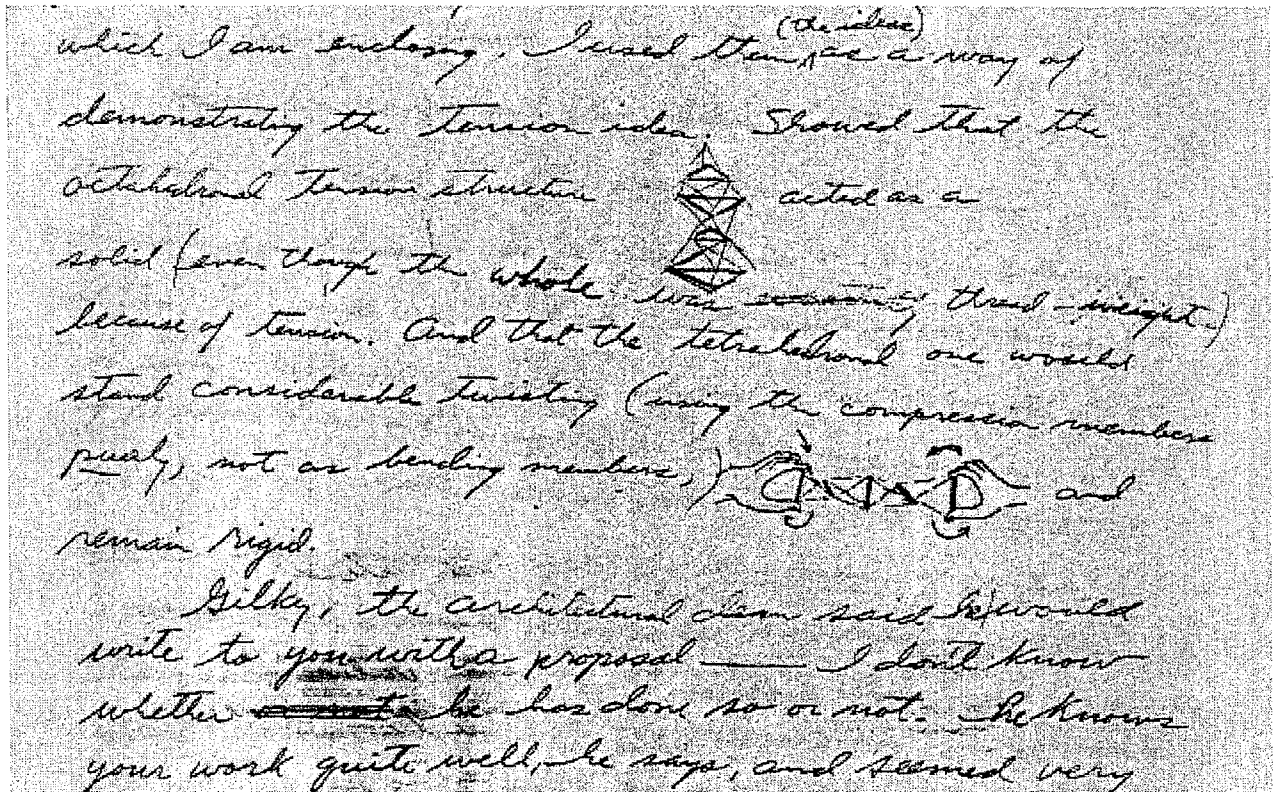 which I am enclosing. I used them (the ideas) as a way of
demonstrating the tension idea. Showed that the
octahedronal tension structure acted as a
solid (even though the whole was thread-weight.)
because of tension. And that the tetrahedronal one would
stand considerable twisting (using the compression members
purely, not as bending members,) and
remain rigid.
Gilky, the architectural dean said he would
write to you with a proposal —— I don't know
whether he has done so or not. he knows
your work quite well, he says, and seemed very